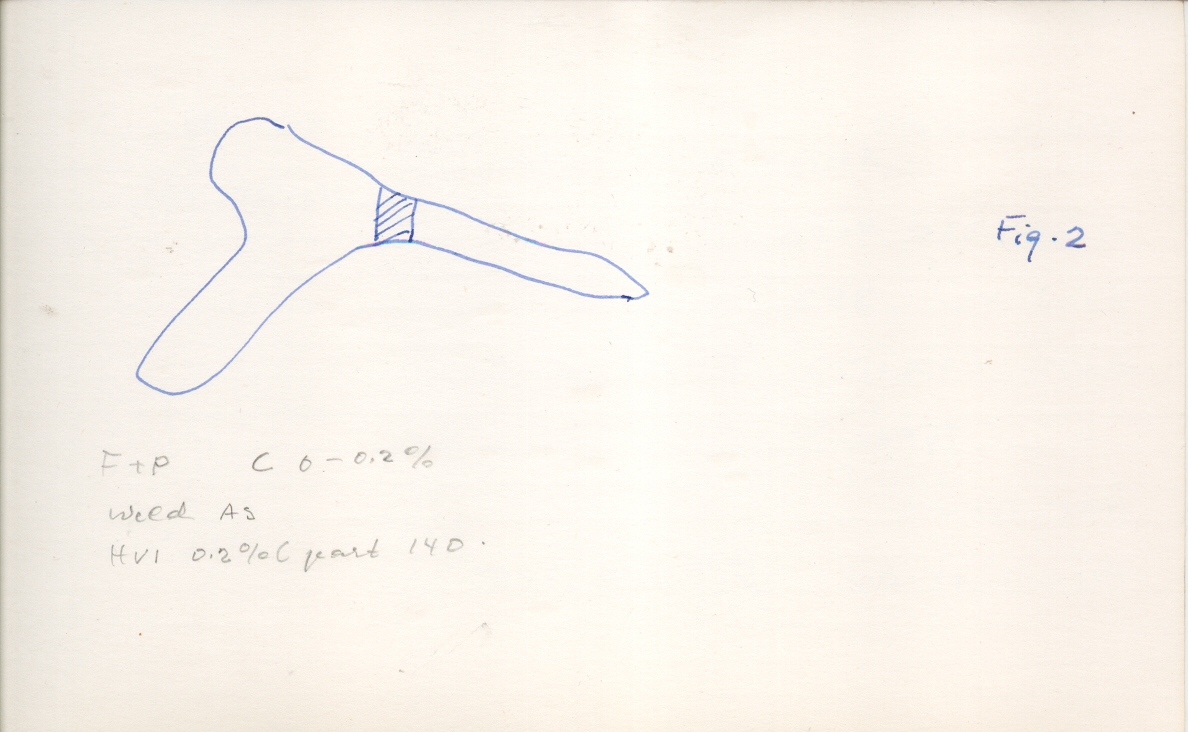 Fig. 2
F+P C 0-0.2%
weld As
HV1 0.2%C part 140.